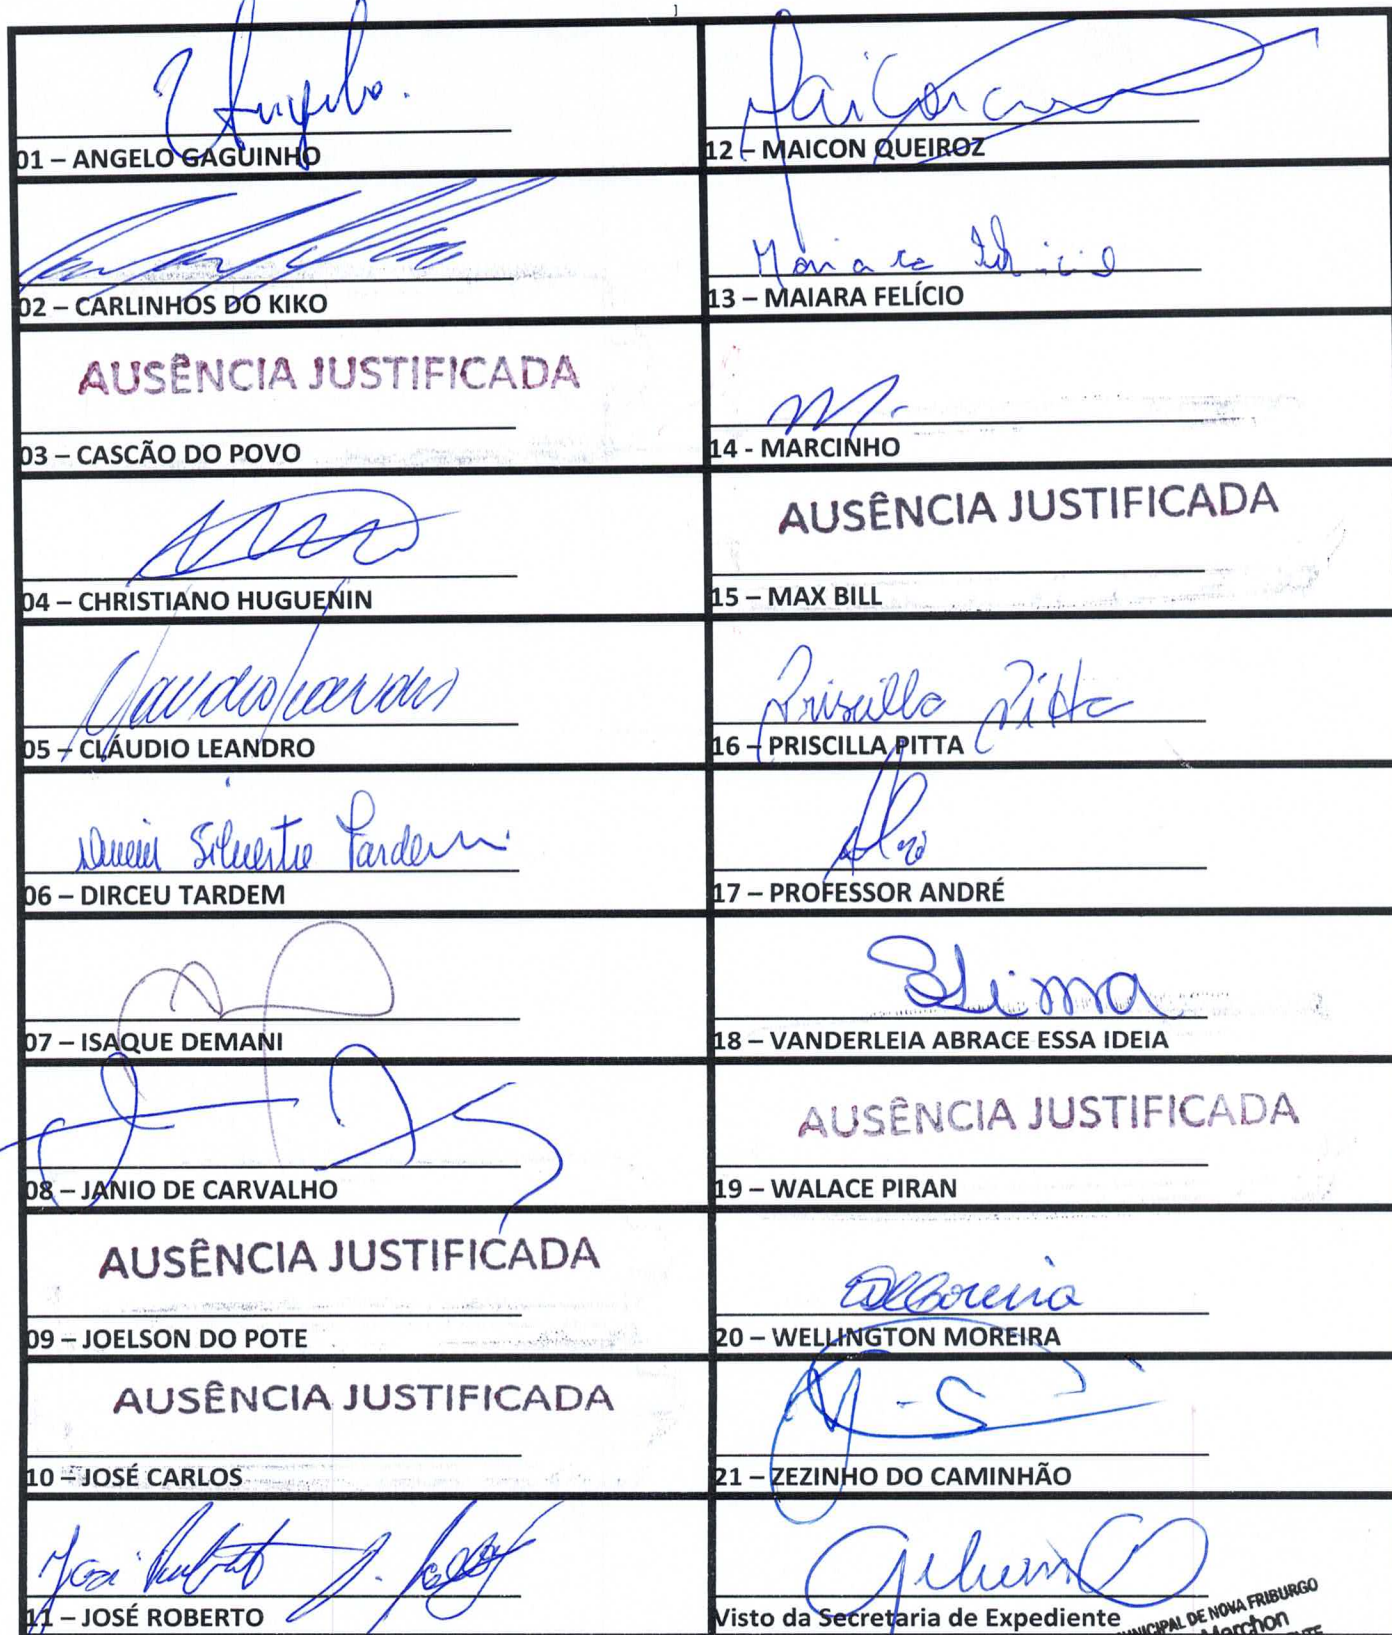 Angelo.
01 – ANGELO GAGUINHO
02 – CARLINHOS DO KIKO
AUSÊNCIA JUSTIFICADA
03 – CASCÃO DO POVO
04 – CHRISTIANO HUGUENIN
Claudio Leandro
05 – CLÁUDIO LEANDRO
Dirceu Silvestre Tardem
06 – DIRCEU TARDEM
07 – ISAQUE DEMANI
08 – JANIO DE CARVALHO
AUSÊNCIA JUSTIFICADA
09 – JOELSON DO POTE
AUSÊNCIA JUSTIFICADA
10 – JOSÉ CARLOS
José Roberto
11 – JOSÉ ROBERTO
Maicon
12 – MAICON QUEIROZ
Maiara Felício
13 – MAIARA FELÍCIO
14 - MARCINHO
AUSÊNCIA JUSTIFICADA
15 – MAX BILL
Priscilla Pitta
16 – PRISCILLA PITTA
17 – PROFESSOR ANDRÉ
Lima
18 – VANDERLEIA ABRACE ESSA IDEIA
AUSÊNCIA JUSTIFICADA
19 – WALACE PIRAN
20 – WELLINGTON MOREIRA
21 – ZEZINHO DO CAMINHÃO
Visto da Secretaria de Expediente
DE NOVA FRIBURGO
Marchon